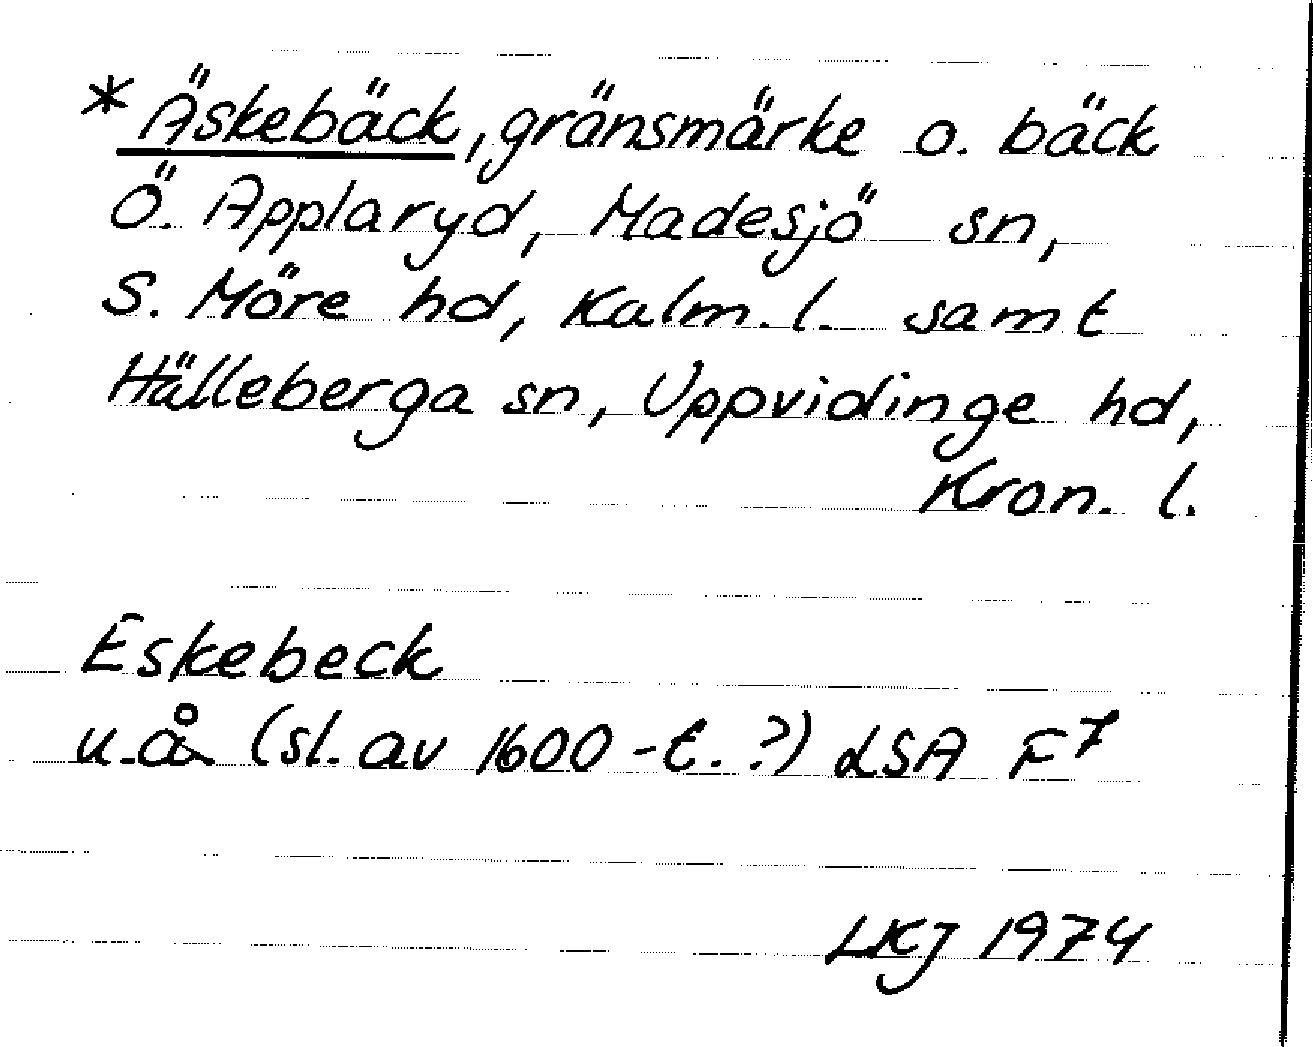 *Äskebäck, gränsmärke o. bäck
Ö. Applaryd, Madesjö sn,
S. Möre hd, Kalm. l. samt
Hälleberga sn, Uppvidinge hd,
Kron. l.
Eskebeck
u.å (sl. av 1600-t. ?) LSA F7
LKJ 1974